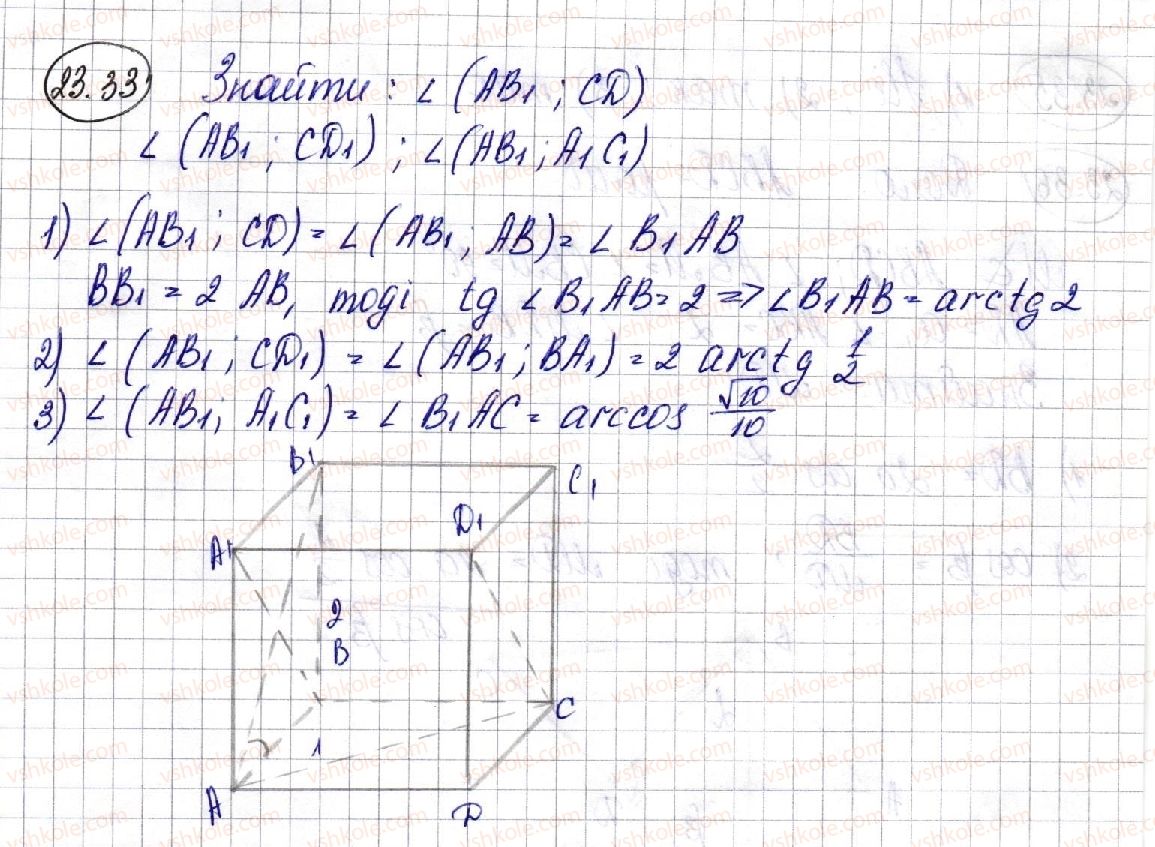 23.33 Знайти: ∠(AB₁; CD)
∠(AB₁; CD₁); ∠(AB₁; A₁C₁)
1) ∠(AB₁; CD) = ∠(AB₁; AB) = ∠B₁AB
BB₁ = 2 AB, тоді tg ∠B₁AB = 2 => ∠B₁AB = arctg 2
2) ∠(AB₁; CD₁) = ∠(AB₁; BA₁) = 2 arctg 1/2
3) ∠(AB₁; A₁C₁) = ∠B₁AC = arccos √10/10
B₁
C₁
D₁
A₁
2
B
C
1
A
D